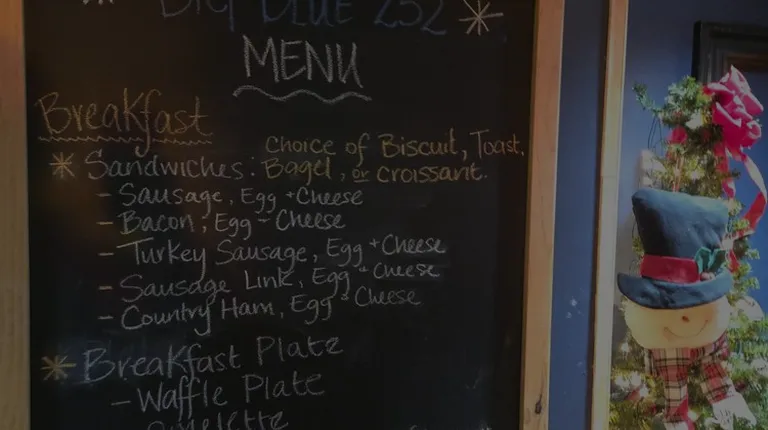 Big Blue 252
MENU
Breakfast
* Sandwiches: Choice of Biscuit, Toast, Bagel, or Croissant.
- Sausage, Egg + Cheese
- Bacon, Egg + Cheese
- Turkey Sausage, Egg + Cheese
- Sausage Link, Egg + Cheese
- Country Ham, Egg + Cheese
* Breakfast Plate
- Waffle Plate
Omelette